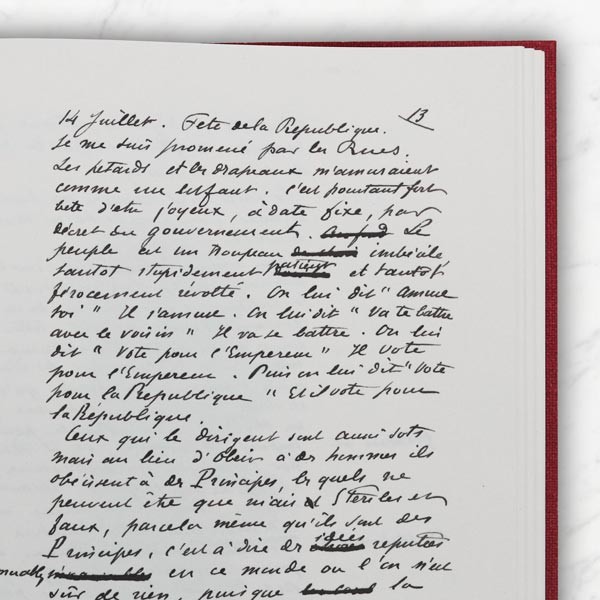 13
14 Juillet. Fete de la Republique.
Je me suis promené par les Rues.
Les petards et les drapeaux m'amusaient
comme un enfant. C'est pourtant fort
bete d'etre joyeux, à date fixe, par
décret du gouvernement. Le
peuple est un troupeau imbécile,
tantot stupidement patient et tantot
férocement révolté. On lui dit "Amuse
toi" Il s'amuse. On lui dit "Va te battre
avec le voisin" Il va se battre. On lui
dit "Vote pour l'Empereur" Il vote
pour l'Empereur. Puis on lui dit "Vote
pour la Republique" Et il vote pour
la République.
Ceux qui le dirigent sont aussi sots
mais au lieu d'obéir à des hommes ils
obéissent à des Principes, lesquels ne
peuvent être que niais Steriles et
faux, parcela même qu'ils sont des
Principes, c'est à dire des idées reputées
en ce monde ou l'on n'est
sûr de rien, puisque la